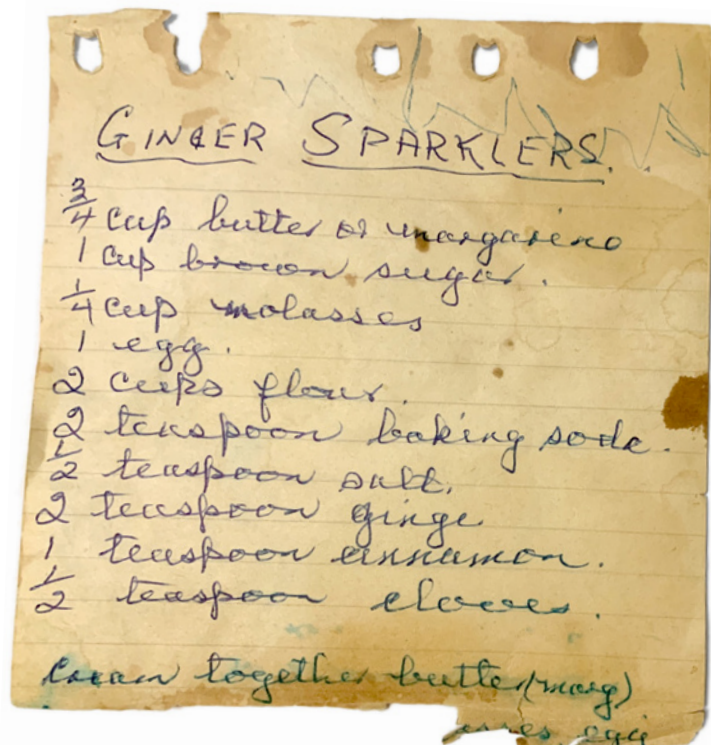 GINGER SPARKLERS.
3/4 cup butter or margarine
1 cup brown sugar.
1/4 cup molasses
1 egg.
2 cups flour.
2 teaspoon baking soda.
1/2 teaspoon salt.
2 teaspoon ginge
1 teaspoon cinnamon.
1/2 teaspoon cloves.
cream together butter (marg)
egg